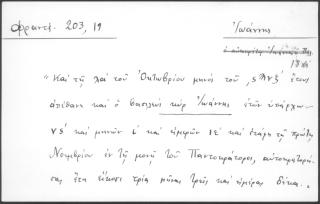 Φραντζ. 203, 19 Ἰωάννης
"Καὶ τῇ λαʹ τοῦ Ὀκτωβρίου μηνὸς τοῦ ͵ϛϡνζʹ ἔτους
ἀπέθανε καὶ ὁ βασιλεὺς κὺρ Ἰωάννης ἐτῶν ὑπάρχων
νϛʹ καὶ μηνῶν ιʹ καὶ ἡμερῶν ιεʹ καὶ ἐτάφη τῇ πρώτῃ
Νοεμβρίου ἐν τῇ μονῇ τοῦ Παντοκράτορος, αὐτοκρατορή-
σας ἔτη εἴκοσι τρία μῆνας τρεῖς καὶ ἡμέρας δέκα..